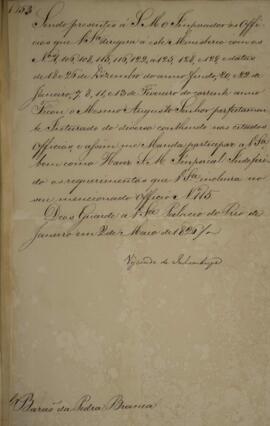 Sendo presentes a S. M. o Imperador os Offi
cios que V. Sª. dirigio a este Ministerio com os
Nos 106, 108, 115, 119, 122, 125, 128, e datas
de 18 e 23 de Dezembro do anno findo, 20 e 22 de
Janeiro, 7, 8, 11, e 13 de Fevereiro do corrente anno
Ficou o Mesmo Augusto Senhor perfeitamen
te Inteirado do diverso conteudo nos citados
Officios e assim me Manda participar a V. Sª.
bem como Haver S. M. Imperial Indeferi
do os requerimentos que V. Sª. incluira no
seu mencionado Officio Nº 115.
Deos Guarde a V. Sª. Palacio do Rio de
Janeiro em 2 de Maio de 1827
Visconde de Inhambupe
Sr Barão da Pedra Branca